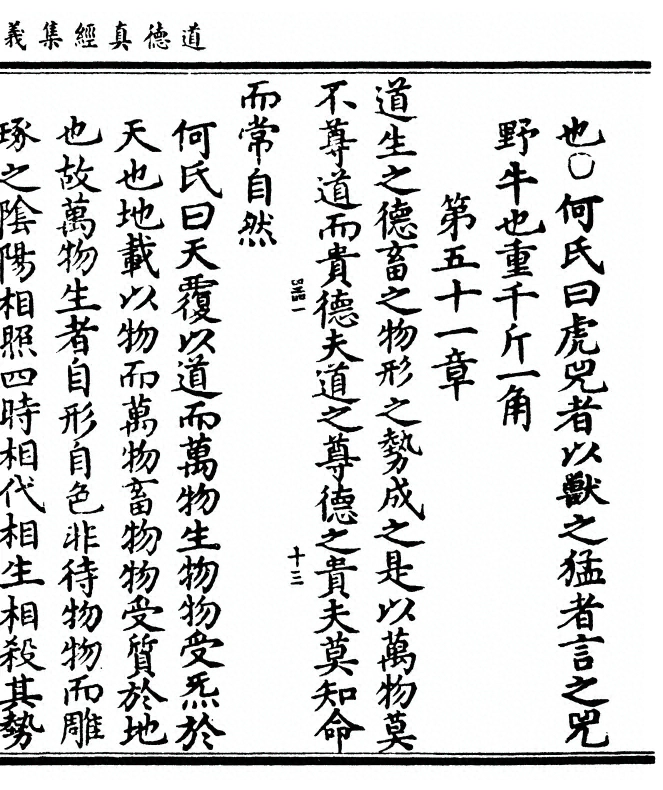 道德真經集義
也○何氏曰虎兕者以獸之猛者言之兕
野牛也重千斤一角
第五十一章
道生之德畜之物形之勢成之是以萬物莫
不尊道而貴德夫道之尊德之貴夫莫知命
而常自然
何氏曰天覆以道而萬物生物物受炁於
天也地載以物而萬物畜物物受質於地
也故萬物生者自形自色非待物物而雕
琢之陰陽相照四時相代相生相殺其勢
十三